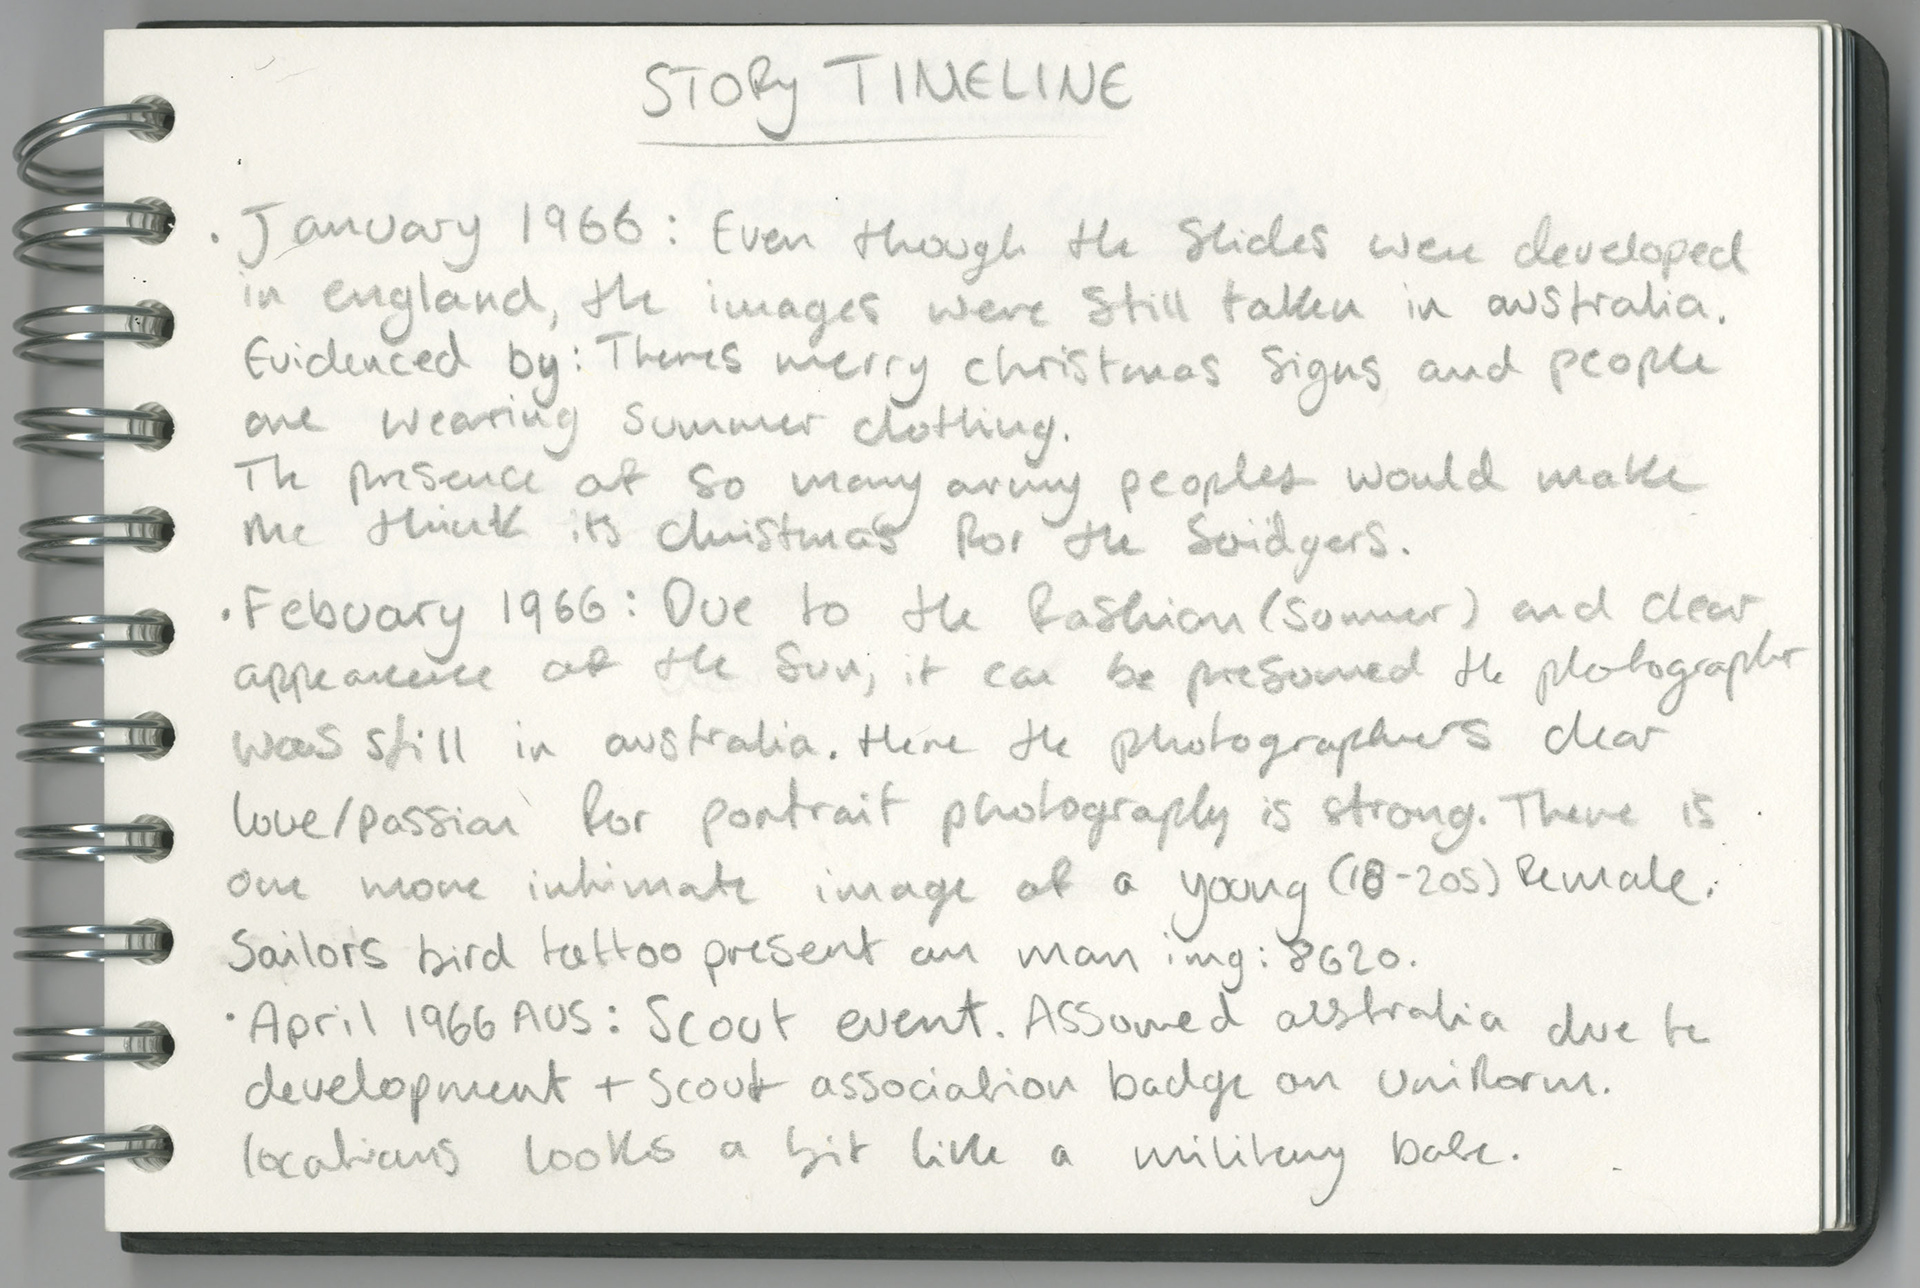 STORY TIMELINE
• January 1966: Even though the slides were developed
in england, the images were still taken in australia.
Evidenced by: Theres merry christmas signs and people
are wearing summer clothing.
The presence of so many army peoples would make
me think its christmas for the soidgers.
• Febuary 1966: Due to the fashion (summer) and clear
appearence of the sun, it can be presumed the photographer
was still in australia. Here the photographers clear
love/passion for portrait photography is strong. There is
one more intimate image of a young (18-20s) female.
Sailors bird tattoo present on man img: 8620.
• April 1966 AUS: Scout event. Assumed australia due to
development + Scout association badge on uniform.
locations looks a bit like a military base.